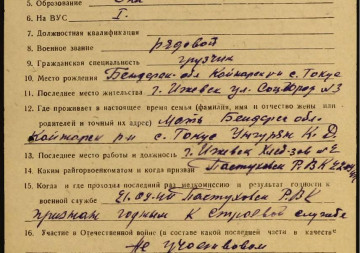 5. Образование
6. На ВУС I.
7. Должностная квалификация
8. Военное звание рядовой
9. Гражданская специальность грузчик
10. Место рождения Бендерск. обл Кайнарский с. Токуз
11. Последнее место жительства г. Ижевск ул. Соцгород №3
12. Где проживает в настоящее время семья (фамилия, имя и отчество жены или
родителей и точный их адрес) Мать Бендерс обл.
р-н с. Токуз К. Д.
13. Последнее место работы и должность г. Ижевск Хлеб-зав №2
14. Каким райгорвоенкоматом и когда призван Пастуховск РВК
15. Когда и где проходил последний раз медкомиссию и результат годности к
военной службе Пастуховск РВК
признан годным к строевой службе
16. Участие в Отечественной войне (в составе какой последней части и в качестве
Не участвовал